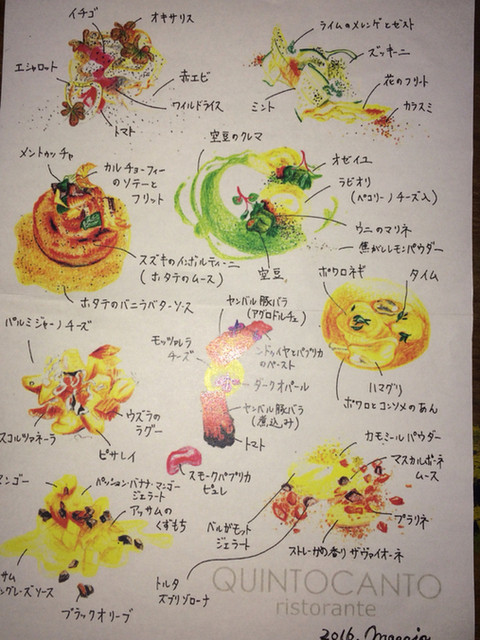 イチゴ
オキサリス
エシャロット
赤エビ
ワイルドライス
トマト
ライムのメレンゲとゼスト
ズッキーニ
花のフリット
カラスミ
ミント
メントゥッチャ
カルチョーフィー
のソテーと
フリット
スズキのインボルティーニ
(ホタテのムース)
ホタテのバニラバターソース
空豆のクレマ
オゼイユ
ラビオリ
(ペコリーノチーズ入)
ウニのマリネ
焦がしレモンパウダー
空豆
ポワロネギ
タイム
ハマグリ
ポワロとコンソメのあん
パルミジャーノチーズ
ウズラの
ラグー
ピサレイ
スコルツァネーラ
ヤンバル豚バラ
(アグロドルチェ)
モッツァレラ
チーズ
ンドゥイヤとパプリカ
のペースト
ダークオパール
ヤンバル豚バラ
(煮込み)
トマト
スモークパプリカ
ピュレ
マンゴー
パッションバナナ・マンゴー
ジェラート
アッサムの
くずもち
サム
ングレーズソース
ブラックオリーブ
カモミールパウダー
マスカルポーネ
ムース
プラリネ
ベルガモット
ジェラート
ストレーガの香り ザヴァイオーネ
トルタ
ズブリゾローナ
QUINTOCANTO
ristorante
2016.